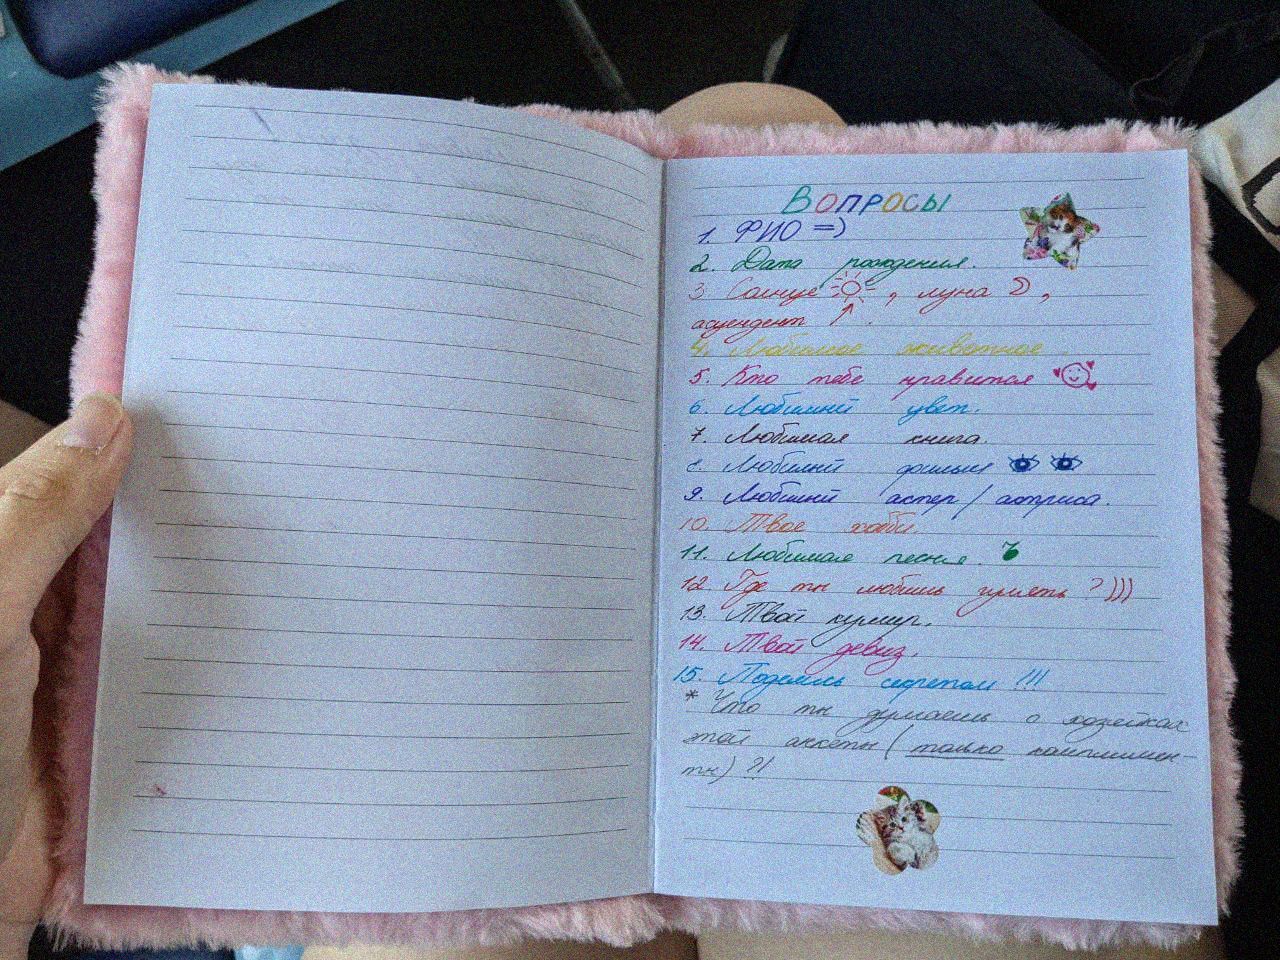 Вопросы
1. ФИО =)
2. Дата рождения.
3 Солнце , луна ,
асцендент .
4. Любимое животное
5. Кто тебе нравится
6. Любимый цвет.
7. Любимая книга.
8. Любимый фильм
9. Любимый актер / актриса.
10. Твое хобби.
11. Любимая песня.
12. Где ты любишь гулять ? )))
13. Твой кумир.
14. Твой девиз.
15. Поделись секретом !!!
* Что ты думаешь о хозяйках
этой анкеты ( только комплимен-
ты) ?!